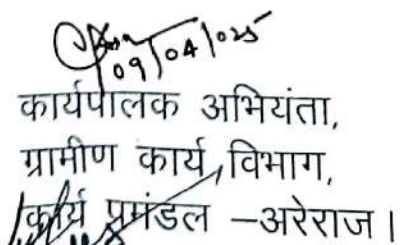 09/04/025
कार्यपालक अभियंता,
ग्रामीण कार्य विभाग,
कार्य प्रमंडल –अरेराज।